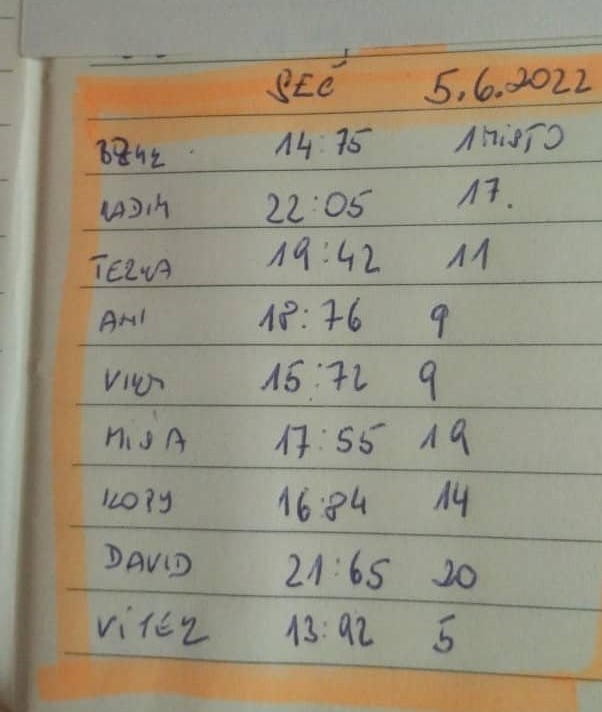 SEČ 5.6.2022
14:75 1 MÍSTO
RADIM 22:05 17.
TEZKA 19:42 11
AMI 18:76 9
15:72 9
MIŠA 17:55 19
KOPY 16:84 14
DAVID 21:65 20
VÍTEZ 13:92 5